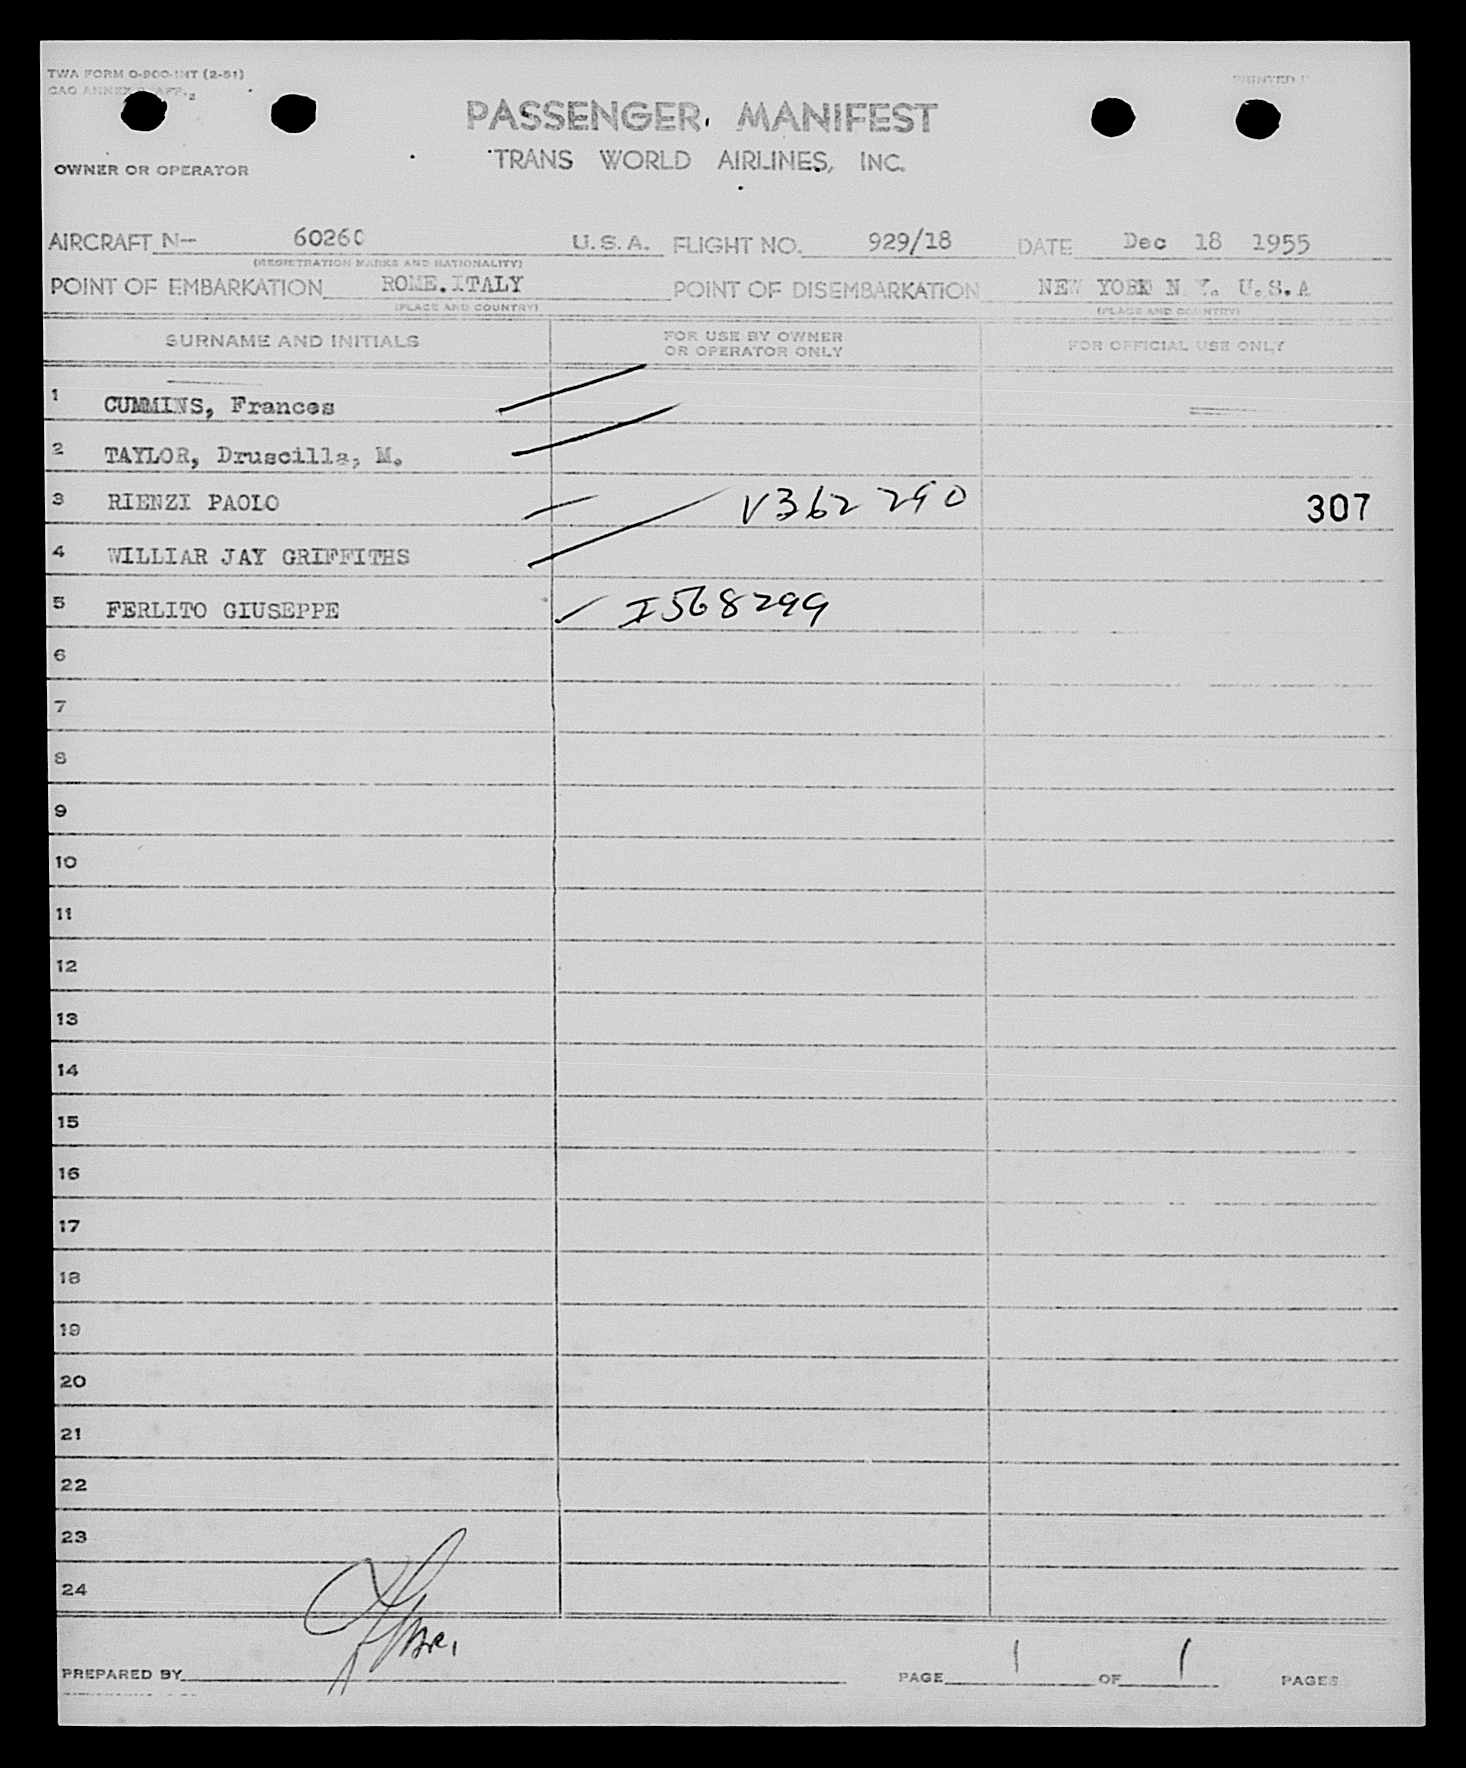 TWA FORM O-900-INT (2-51)
CAO ANNEX 9 APP. 2
PRINTED
PASSENGER MANIFEST
TRANS WORLD AIRLINES, INC.
OWNER OR OPERATOR
AIRCRAFT N- 60260 U.S.A. FLIGHT NO. 929/18 DATE Dec 18 1955
(REGISTRATION MARKS AND NATIONALITY)
POINT OF EMBARKATION ROME.ITALY POINT OF DISEMBARKATION NEW YORK N.Y. U.S.A
(PLACE AND COUNTRY) (PLACE AND COUNTRY)
SURNAME AND INITIALS FOR USE BY OWNER OR OPERATOR ONLY FOR OFFICIAL USE ONLY
1 CUMMINS, Frances
2 TAYLOR, Druscilla, M.
3 RIENZI PAOLO V362 290 307
4 WILLIAR JAY GRIFFITHS
5 FERLITO GIUSEPPE I568299
6
7
8
9
10
11
12
13
14
15
16
17
18
19
20
21
22
23
24
PREPARED BY PAGE 1 OF 1 PAGES